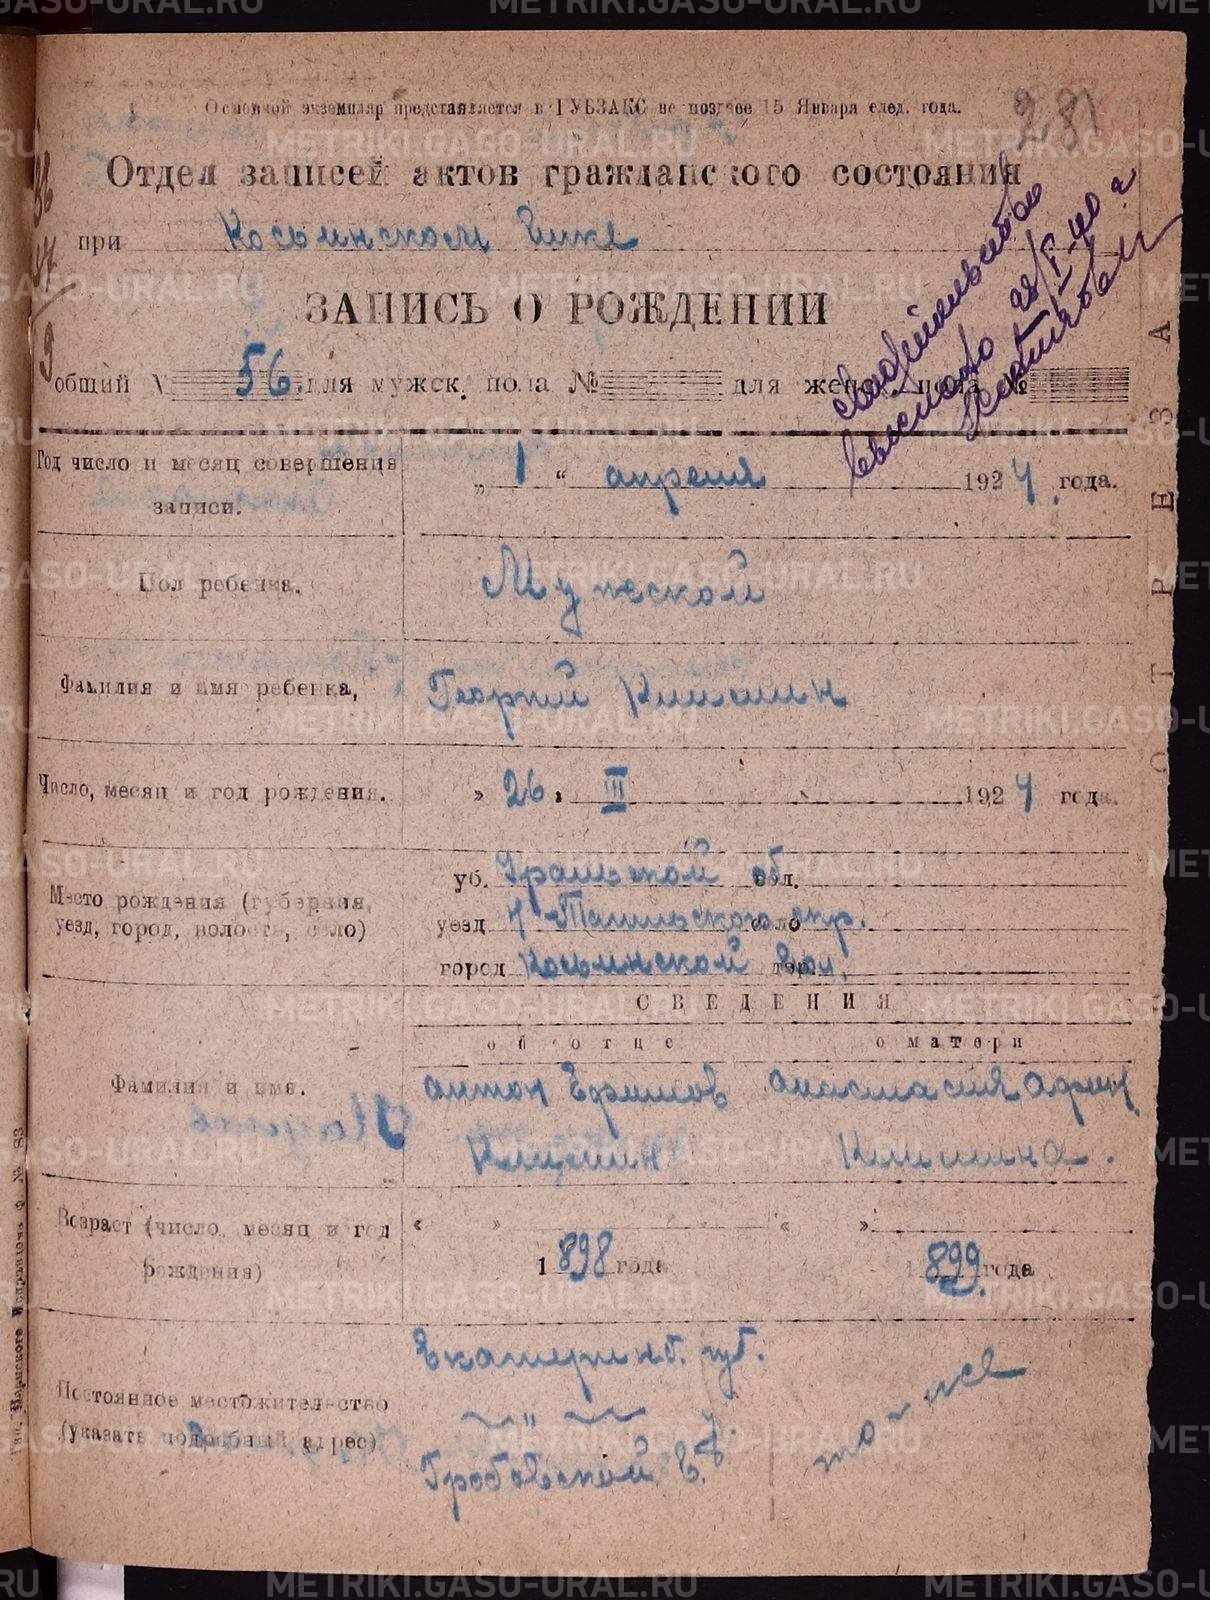 Основной экземпляр представляется в ГУБЗАКС не позднее 15 Января след. года.
281
Отдел записей актов гражданского состояния
при Косьинском Вике
ЗАПИСЬ О РОЖДЕНИИ
Свидетельство
28/V-40 г
общий № 56. для мужск. пола № для женск. пола №
Год число и месяц совершения записи. „ 1 “ апреля 1924. года.
Пол ребенка. Мужской
Фамилия и имя ребенка, Георгий Кишмин
Число, месяц и год рождения. » 26, III 1924 года.
Место рождения (губерния, уезд, город, волость, село)
уб. Уральской обл.
уезд Н-Тагильского окр. село
город Косьинской вол. дер.
СВЕДЕНИЯ
об отце о матери
Фамилия и имя. Антон Ефимов Анастасия
Возраст (число, месяц и год рождения) « » « »
1898 года 1899. года
Постоянное местожительство (указать подробный адрес)
Екатеринб. губ.
— " —
Гробовской в. то-же
ОТРЕЗ
МЕTRIKI.GASO-URAL.RU